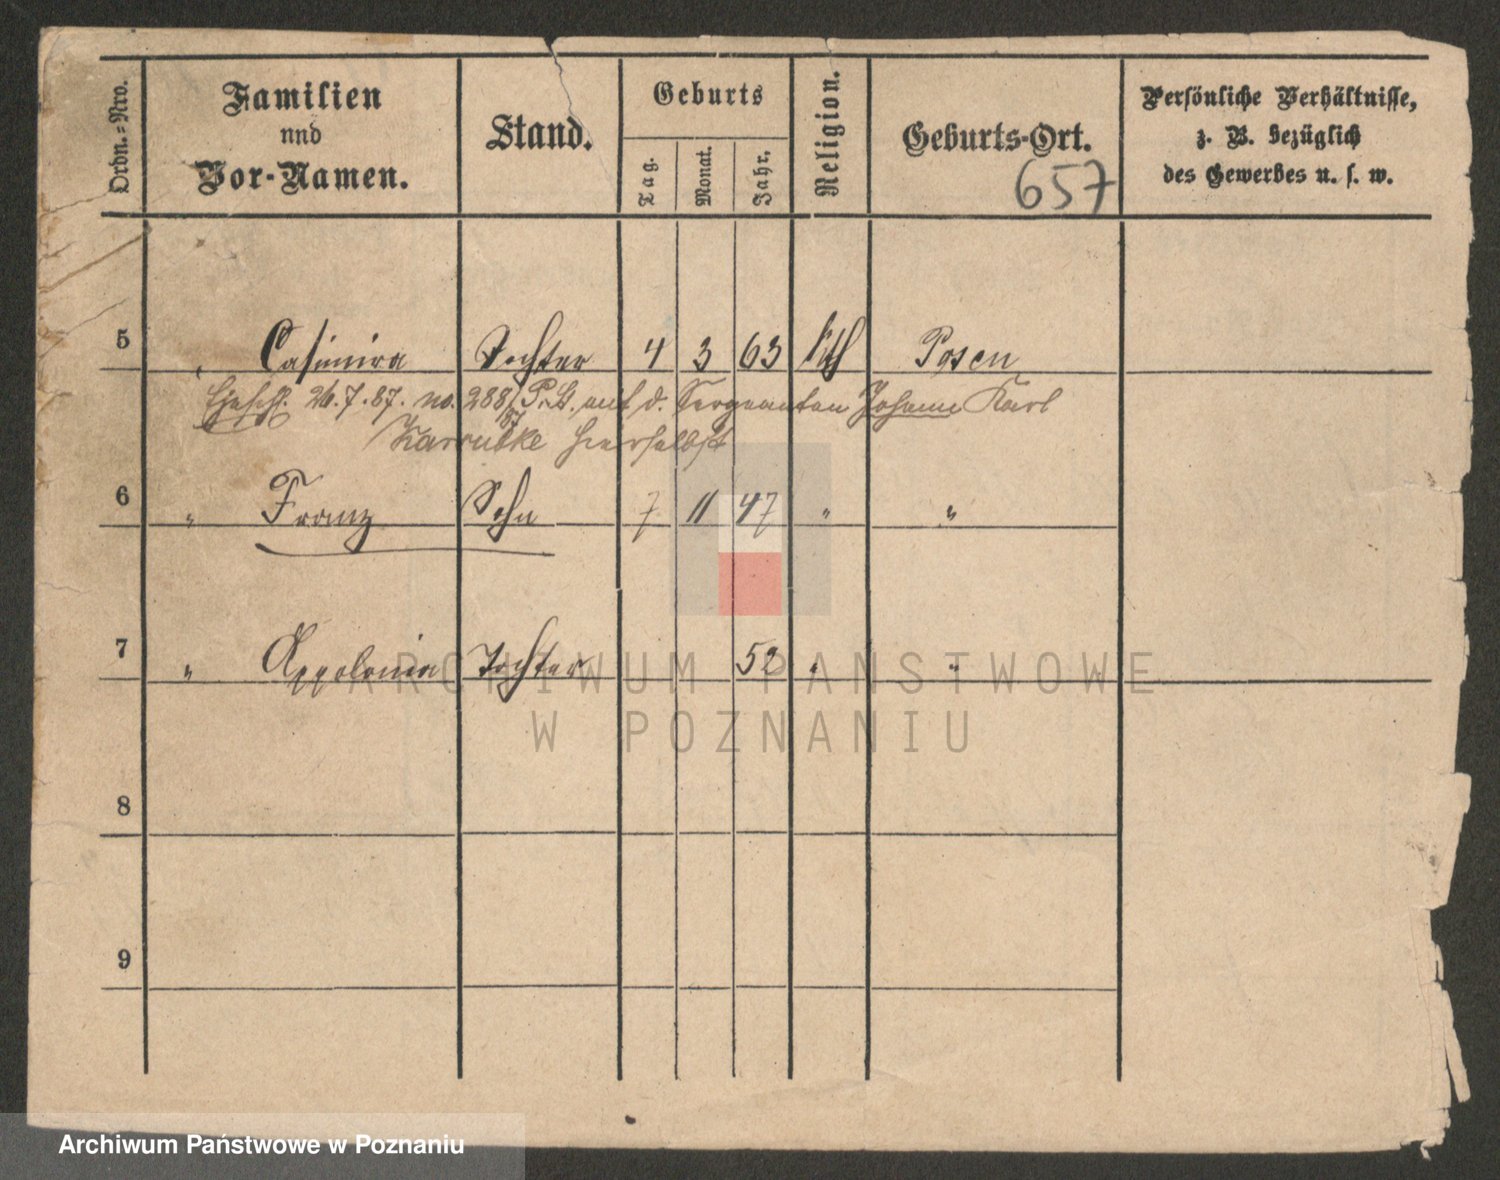 Ordn.=Nro.
Familien
und
Vor-Namen.
Stand.
Geburts
Tag.
Monat.
Jahr.
Religion.
Geburts-Ort.
657
Persönliche Verhältnisse,
z. B. bezüglich
des Gewerbes u. s. w.
5 " Casimira Tochter 4 3 63 kth Posen
26.7.87. no. 288/87 auf d. Sergeanten Johann Karl
hierselbst
6 " Franz Sohn 7 11 47 " "
7 " Appolonia Tochter 52 " "
8
9
ARCHIWUM PAŃSTWOWE
W POZNANIU
Archiwum Państwowe w Poznaniu